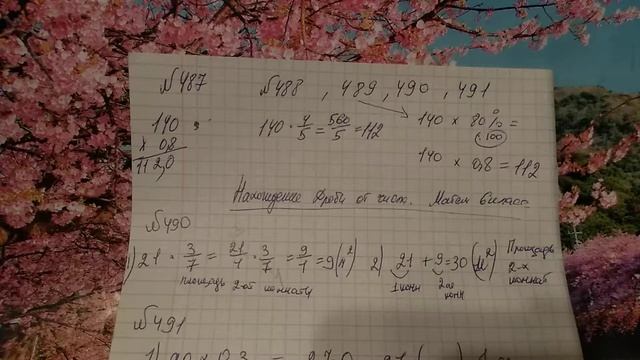 №487 №488, 489, 490, 491
140
х 0,8
112,0
140 · 4/5 = 560/5 = 112
140 × 80% =
:100
140 × 0,8 = 112
Нахождение дроби от числ. Матем 6 класс
№490
1) 21 · 3/7 = 21/1 · 3/7 = 9/1 = 9 (м²)
площадь 2-ой комнаты
2) 21 + 9 = 30 (м²) Площадь 2-х комнат
1 комн 2-ая комн
№491